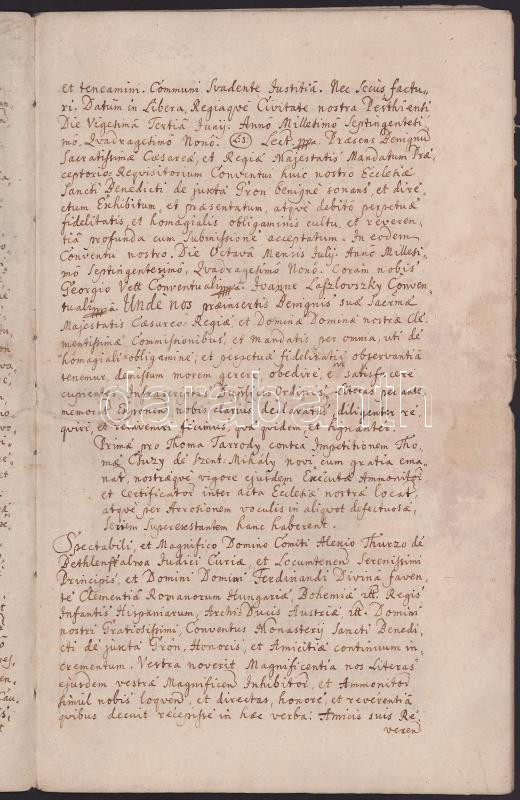 et teneamini. Communi Svadente Justitiâ. Nec secus factu-
ri. Datum in Libera, Regiaqve Civitate nostra Pesthiensi
Die Vigesimâ Tertiâ Junij. Anno Millesimo Septingentesi
mo, Qvadragesimo Nonô. (L.S.) Lect. Præsens Benignũ
Sacratissimæ Cæsareæ, et Regiæ Majestatis Mandatum Præ
ceptorio Reqvisitorium Conventui huic nostro Eccletiæ
Sancti Benedicti de juxta Gron benigne sonans, et dire
ctum Exhibitum, et præsentatum, atqve debitô perpetuæ
fidelitatis, et homagialis obligaminis cultu, et reveren-
tiâ profunda cum Submissione acceptatum. In eodem
Conventu nostro, Die Octavâ Mensis Julij. Anno Millesi-
mô Septingentesimô, Qvadragesimo Nonô. Coram nobis
Georgio Vett Conventuali Joanne Laszlovszky Conven-
tuali Unde nos præinsertis Benignis suæ Sacræ
Majestatis Cæsareo Regiæ et Dominæ Dominæ nostræ Cle
mentissimæ Commissionibus, et Mandatis per omnia, uti de
homagiali obligamine, et perpetuæ fidelitatis observantiâ
tenemur, demissum morem gerere obedire, et satisfacere
cupientes Infrascriptas Duplicis Ordinis Literas per ante
memoratos Exponen nobis clarius declaratas, diligenter re
qviri, et reinveniri fecimus, qvæ pridem, et signanter.
Prima pro Thoma Tarrody contra Impetitionem Tho
mæ Chuzy de Szent-Mihály novi cum gratia ema-
nat, nostraqve vigore ejusdem Executæ Ammonitor
et Certificator inter acta Eccletiæ nostræ locat,
atqve per Arrosionem voculis in aliqvot defectuosæ,
Seriem Superexstantem hanc haberent.
Spectabili, et Magnifico Domino Comiti Alexio Thurzo de
Bethlenfalwa Judici Curiæ, et Locumtenen Serenissimi
Principis, et Domini Domini Ferdinandi Divinâ faven,
te Clementiâ Romanorum Hungariæ, Bohemiæ ttt. Regis
Infantis Hispaniarum, Archi Ducis Austriæ, ttt. Domini
nostri Gratiosissimi, Conventus Monasterij Sancti Benedi,
cti de juxta Gron, Honoris, et Amicitiæ continuum in-
crementum. Vestra noverit Magnificentia nos Literas
ejusdem vestræ Magnificen Inhibitor, et Ammonitor
simul nobis loqven, et directas, honore, et reverentiâ
qvibus decuit recepisse in hæc verba. Amicis suis Re-
veren
darabanth